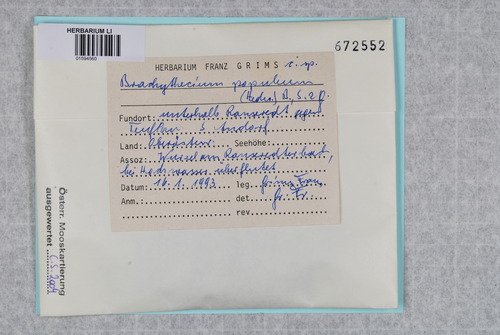 HERBARIUM LI
01594560
672552
HERBARIUM FRANZ GRIMS
Brachythecium populeum
(Hedw.) B., S. & G.
Fundort: unterhalb Ranseredt gegen
S. Andorf
Land: Oberösterr. Seehöhe:
Assoz: Wurzel am
bei Hochwasser überflutet
Datum: 16.1.1993 leg. Grims Franz
Anm.: det. Gr. Fr.
rev.
Österr. Mooskartierung
ausgewertet